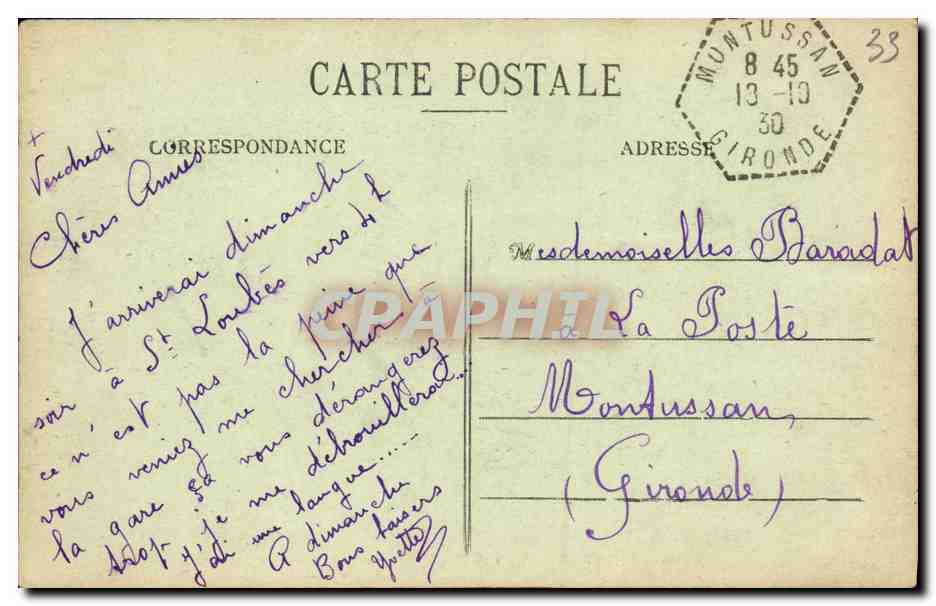 CARTE POSTALE
CORRESPONDANCE
ADRESSE
MONTUSSAN
8 45
13 -10
30
GIRONDE
33
+
Vendredi
Chères Amies
J'arriverai dimanche
soir à St Loubès vers 4h
ce n'est pas la peine que
vous veniez me chercher à
la gare ça vous dérangerez
trop, je me débrouillerai...
j'ai une langue.....
A dimanche
Bons baisers
Yvette
Mesdemoiselles Baradat
à La Poste
Montussan,
(Gironde)
CPAPHIL